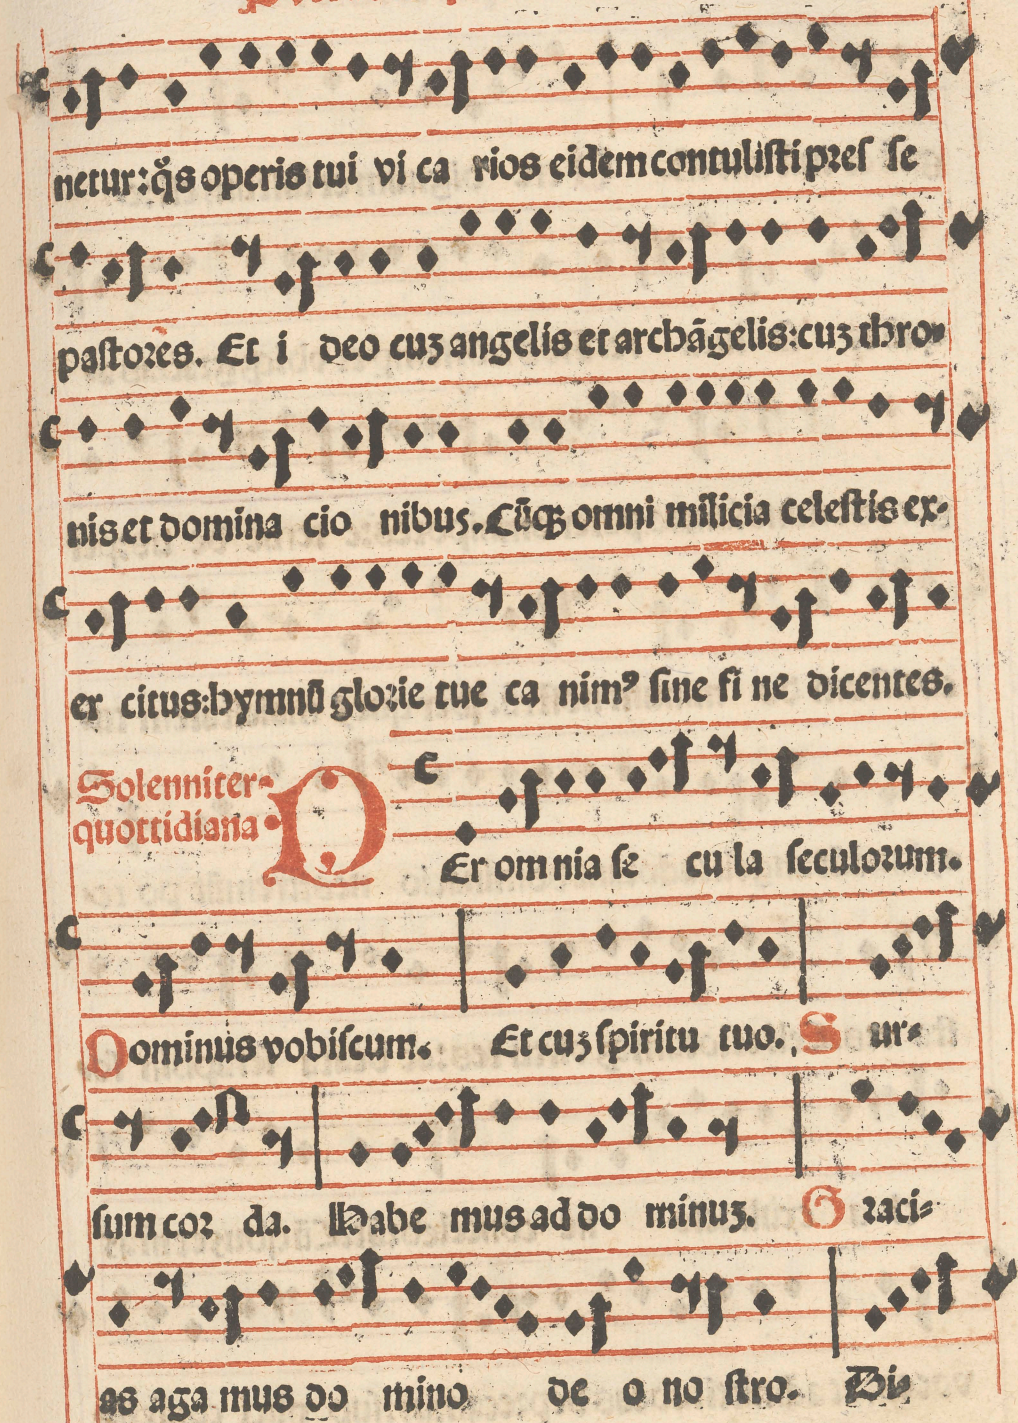 netur: q̊s operis tui vi ca rios eidem contulisti pꝛes se
pastoꝛes. Et i deo cuȝ angelis et archāgelis: cuȝ thro-
nis et domina cio nibus. Cūqꝫ omni milicia celestis ex-
er citus: hymnū gloꝛie tue ca nimꝰ sine fi ne dicentes.
Solenniter
quottidiana
PEr om nia se cu la seculoꝛum.
Dominus vobiscum. Et cuȝ spiritu tuo. S ur-
sum coꝛ da. Habe mus ad do minuȝ. G raci-
as aga mus do mino de o no stro. Di-